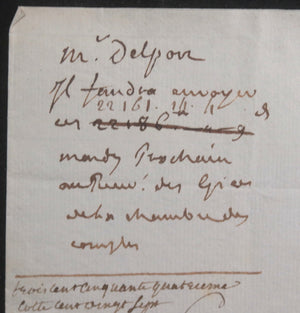 Mr. Delpon
Il faudra envoyer
22161. 14. 1. d
ces 22186
mardy Prochain
au Recev.r des Epices
de la chambre des
comptes
trois cent cinquante quatrieme
cotte cent vingt sept